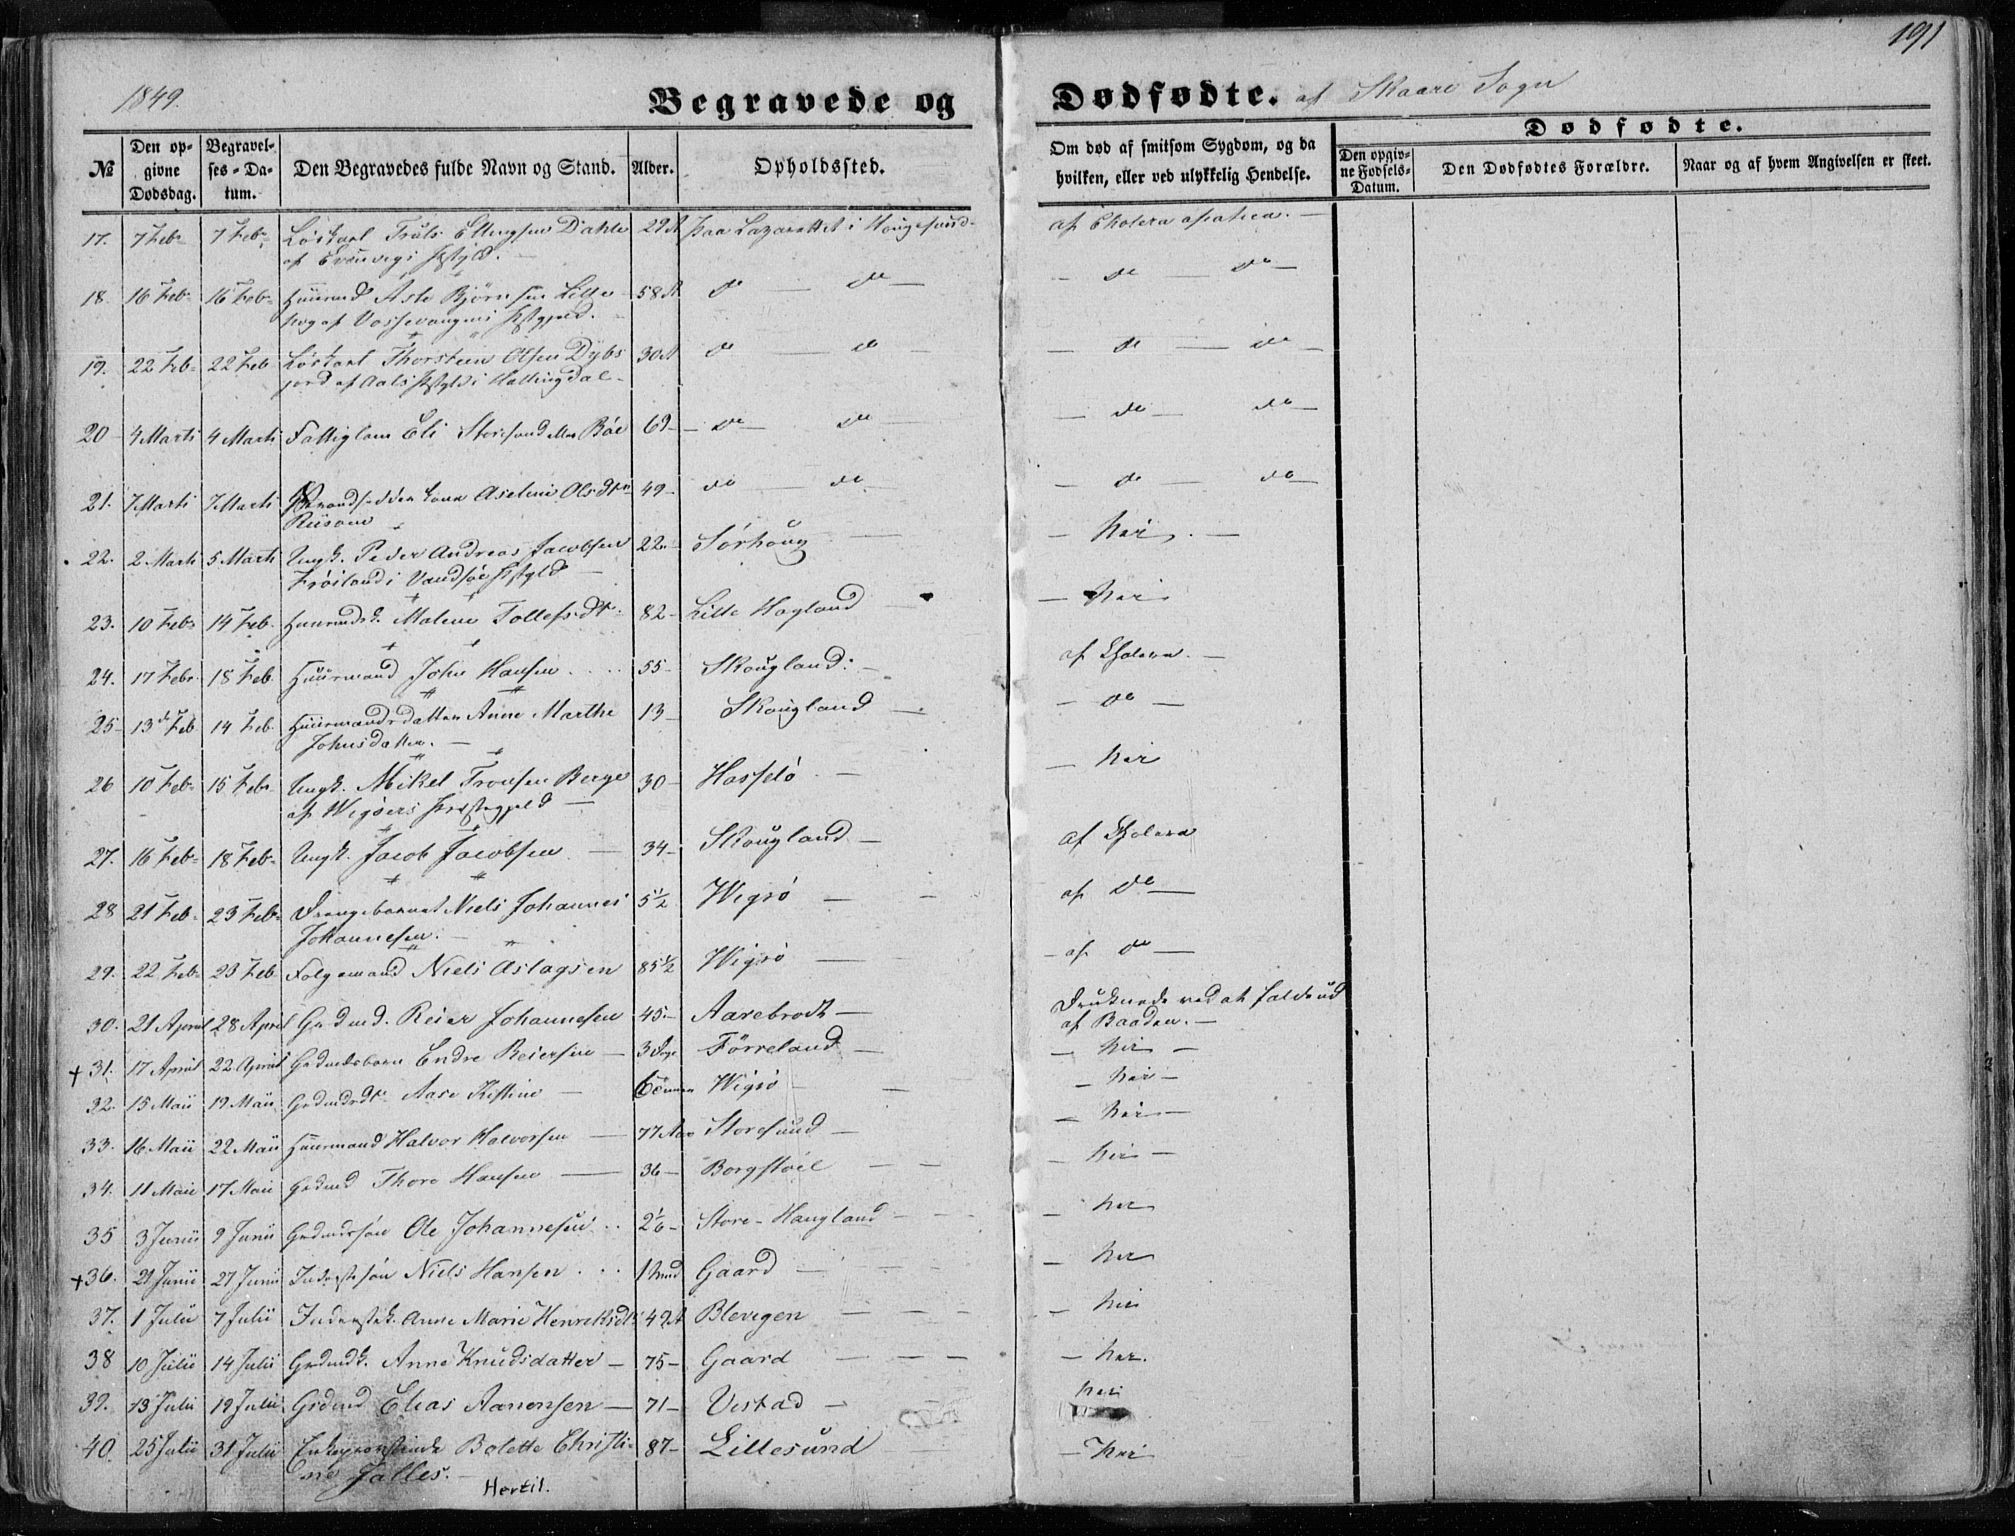 191
1849.
Begravede og Dødfødte. af Skaare Sogn
№
Den opgivne Dødsdag.
Begravelses-Datum.
Den Begravedes fulde Navn og Stand.
Alder.
Opholdssted.
Om død af smitsom Sygdom, og da hvilken, eller ved ulykkelig Hendelse.
Dødfødte.
Den opgivne Fødsels-Datum.
Den Dødfødtes Forældre.
Naar og af hvem Angivelsen er skeet.
17. 7 Febr 7 Febr Løskarl Truls Ellingsen Dahle 29 A paa Lazarettet i Hougesund af Cholera asiatica. —
af Evenvigs Pstgld. —
18. 16 Feb 16 Feb Huusmd Asle Bjørnsen Lille 58 A do — do — — do — do —
af Vossevangens Pstgjeld.
19. 22 Feb 22 Feb Løskarl Thorsteen Olsen Dybs 30 A do — do — — do — do —
jord af Aals Pstgld i Hallingdal —
20 4 Marti 4 Marti Fattiglem Eli Storesund eller Bøe 69 — do — do — do — do —
21. 7 Marti 7 Marti Strandsidderkone Aseline Olsdtr 49 — do — do — do — do —
22. 2 Marti 5 Marti Ungk. Peder Andreas Jacobsen 22 — Sørhoug — Nei. —
Frøiland i Pstgld —
23. 10 Feb 14 Feb Huusmdsk. Malene Tollefsdtr 82 — Lille Hagland — Nei
24. 17 Febr 18 Feb Huusmand John Hansen 55 — Skougland — af Cholera. —
25 13 Feb 14 Feb Huusmandsdatter Anne Marthe 13 — Skougland — — do —
Johnsdatter. —
26 10 Feb 15 Febr Ungk. Mikel Tronsen Berge 30 — Hasselø — — Nei
af Wigøers Præstegjeld —
27. 16 Feb 18 Feb Ungk. Jacob Jacobsen — 34 — Skougland — af Cholera
28 21 Feb 23 Feb Drengebarnet Niels Johannes 5 1/2 Wigsø — af do —
Johannesen. —
29. 22 Feb 23 Feb Folgemand Niels Aslagsen 85 1/2 Wigsø — — af do —
30. 21 April 28 April Grdmd. Reier Johannesen 45 — Aarebrodt — Druknede ved at falde ud
af Baaden. —
+ 31. 17 April 22 April Grdmdsbarn Endre Reiersen — 3 Dage Førreland — — Nei —
32. 15 Maii 19 Maii Grdmdsdtr Aase Kistine — Wigsø — — Nei —
33. 16 Maii 22 Maii Huusmand Halvor Halvorsen — 77 Aar Storesund — — Nei —
34. 11 Maii 17 Maii Grdmd Thore Hansen — 36 — Borgstøil — — Nei —
35 3 Junii 9 Junii Grdmdssøn Ole Johannesen 2 1/6 — Store-Haugland — — Nei
+36. 21 Junii 27 Junii Inderstsøn Niels Hansen 1 Mnd Gaard — — Nei
37. 1 Julii 7 Julii Inderstek. Anne Marie Henriksdtr 42 A Blevegen — — Nei
38 10 Julii 14 Julii Grdmdk. Anne Knudsdatter — 75 — Gaard — — Nei.
39. 13 Julii 19 Julii Grdmd Elias Aanensen — 71 — Vestad — Nei
40. 25 Julii 31 Julii Bolette Christi 87 — Lillesund — Nei
ne Falles. —
Hertil.